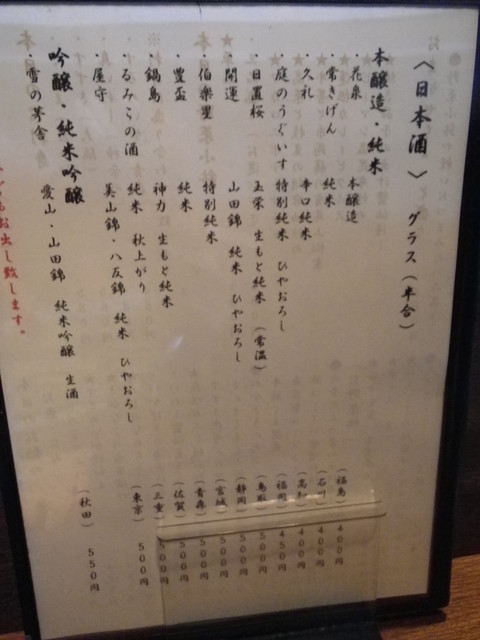 〈日本酒〉 グラス(半合)
本醸造・純米
・花泉 本醸造 (福島) 400円
・常きげん 純米 (石川) 400円
・久礼 辛口純米 (高知) 400円
・庭のうぐいす 特別純米 ひやおろし (福岡) 450円
・日置桜 玉栄 生もと純米 (常温) (鳥取) 500円
・開運 山田錦 純米 ひやおろし (静岡) 500円
・伯楽星 特別純米 (宮城) 500円
・豊盃 純米 (青森) 500円
・鍋島 神力 生もと純米 (佐賀) 500円
・るみこの酒 純米 秋上がり (三重) 500円
・屋守 美山錦・八反錦 純米 ひやおろし (東京) 500円
吟醸・純米吟醸
・雪の茅舎 愛山・山田錦 純米吟醸 生酒 (秋田) 550円
もお出し致します。